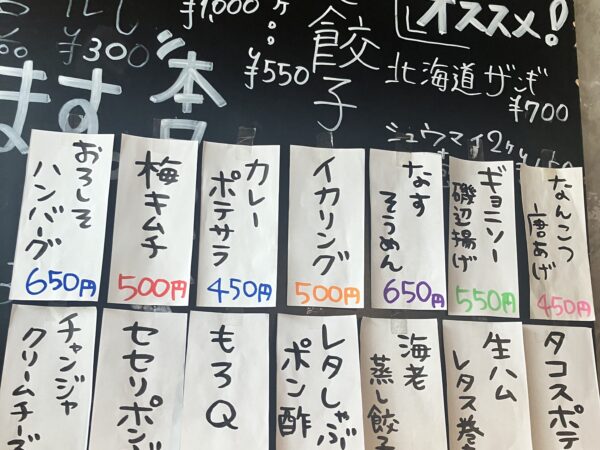 ¥1,000
¥300
ます
本日
¥550
餃子
オススメ!
北海道ザンギ
¥700
シュウマイ2ケ
おろしそ
ハンバーグ
650円
梅キムチ
500円
カレー
ポテサラ
450円
イカリング
500円
なす
そうめん
650円
ギョニソー
磯辺揚げ
550円
なんこつ
唐あげ
450円
チャンジャ
クリームチーズ
セセリポン
もろQ
レタしゃぶ
ポン酢
海老
蒸し餃子
生ハム
レタス巻き
タコスポテ